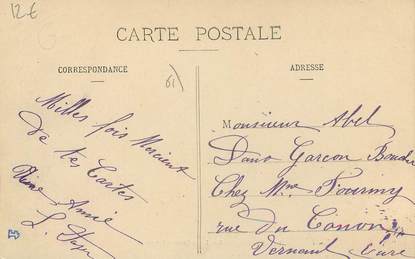 12 €
CARTE POSTALE
CORRESPONDANCE
ADRESSE
61
Milles fois Merciant
de tes Cartes
Une Amie
L.
Monsieur Abel
Dano Garcon Boucher
Chez Mme Fourmy
rue du Canon
Verneuil Eure